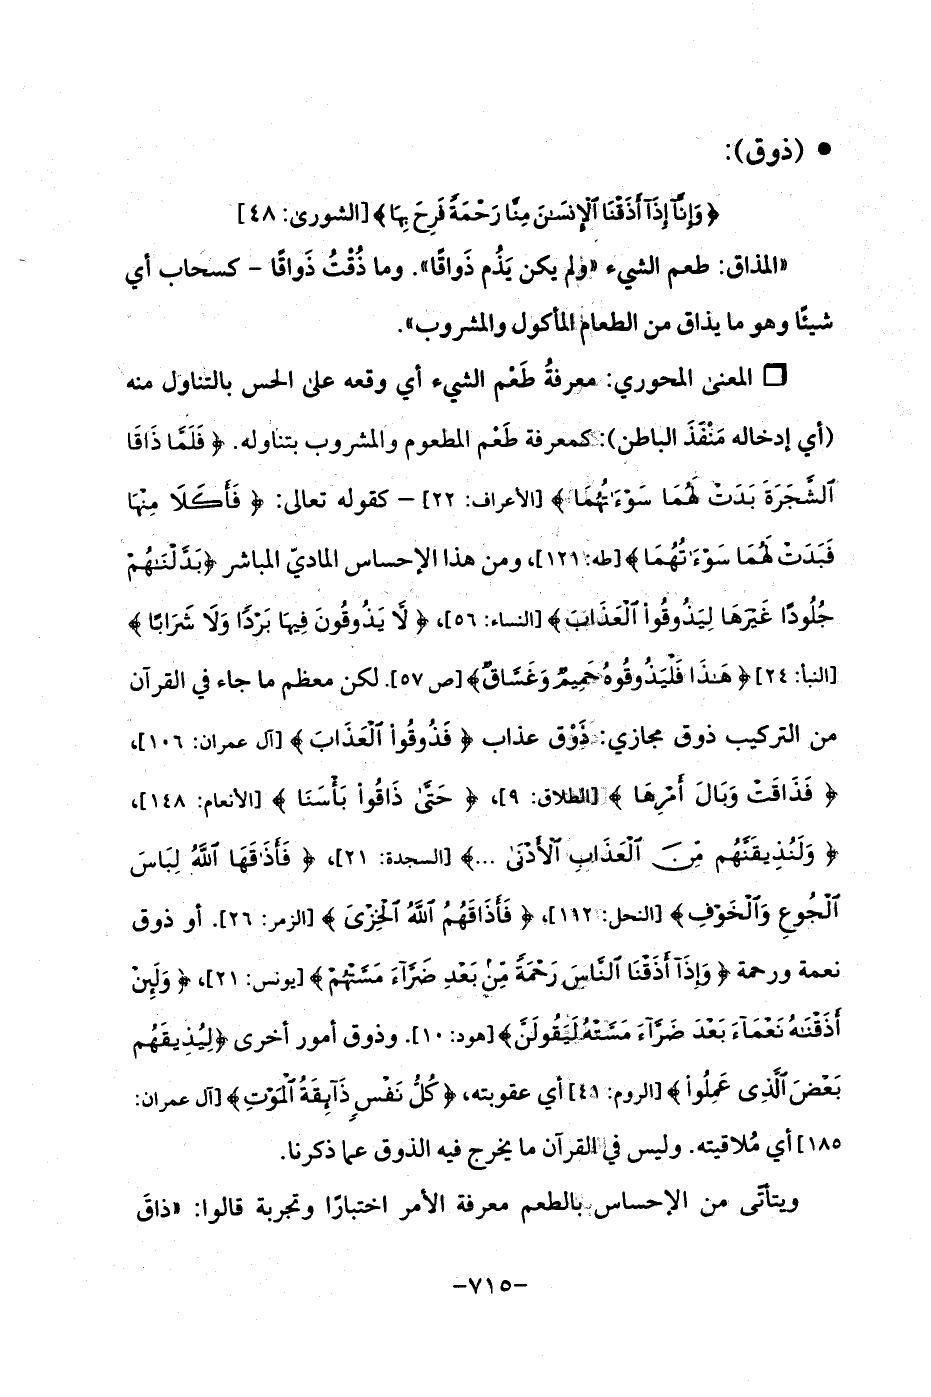 • (ذوق):
﴿ وَإِنَّآ إِذَآ أَذَقْنَا ٱلْإِنسَٰنَ مِنَّا رَحْمَةً فَرِحَ بِهَا ﴾ [الشورى: ٤٨]
«المذاق: طعم الشيء «ولم يكن يَذُم ذَواقًا». وما ذُقْتُ ذَواقًا – كسحاب أي
شيئًا وهو ما يذاق من الطعام المأكول والمشروب».
□ المعنى المحوري: معرفةُ طَعْم الشيء أي وقعه على الحس بالتناول منه
(أي إدخاله مَنْفَذَ الباطن): كمعرفة طَعْم المطعوم والمشروب بتناوله. ﴿ فَلَمَّا ذَاقَا
ٱلشَّجَرَةَ بَدَتْ لَهُمَا سَوْءَٰتُهُمَا ﴾ [الأعراف: ٢٢] – كقوله تعالى: ﴿ فَأَكَلَا مِنْهَا
فَبَدَتْ لَهُمَا سَوْءَٰتُهُمَا ﴾ [طه: ١٢١]، ومن هذا الإحساس الماديّ المباشر ﴿ بَدَّلْنَٰهُمْ
جُلُودًا غَيْرَهَا لِيَذُوقُوا۟ ٱلْعَذَابَ ﴾ [النساء: ٥٦]، ﴿ لَّا يَذُوقُونَ فِيهَا بَرْدًا وَلَا شَرَابًا ﴾
[النبأ: ٢٤] ﴿ هَٰذَا فَلْيَذُوقُوهُ حَمِيمٌ وَغَسَّاقٌ ﴾ [ص ٥٧]. لكن معظم ما جاء في القرآن
من التركيب ذوق مجازي: ذَوْق عذاب ﴿ فَذُوقُوا۟ ٱلْعَذَابَ ﴾ [آل عمران: ١٠٦]،
﴿ فَذَاقَتْ وَبَالَ أَمْرِهَا ﴾ [الطلاق: ٩]، ﴿ حَتَّىٰ ذَاقُوا۟ بَأْسَنَا ﴾ [الأنعام: ١٤٨]،
﴿ وَلَنُذِيقَنَّهُم مِّنَ ٱلْعَذَابِ ٱلْأَدْنَىٰ ...﴾ [السجدة: ٢١]، ﴿ فَأَذَٰقَهَا ٱللَّهُ لِبَاسَ
ٱلْجُوعِ وَٱلْخَوْفِ ﴾ [النحل: ١١٢]، ﴿ فَأَذَاقَهُمُ ٱللَّهُ ٱلْخِزْىَ ﴾ [الزمر: ٢٦]. أو ذوق
نعمة ورحمة ﴿ وَإِذَآ أَذَقْنَا ٱلنَّاسَ رَحْمَةً مِّنۢ بَعْدِ ضَرَّآءَ مَسَّتْهُمْ ﴾ [يونس: ٢١]، ﴿ وَلَئِنْ
أَذَقْنَٰهُ نَعْمَآءَ بَعْدَ ضَرَّآءَ مَسَّتْهُ لَيَقُولَنَّ ﴾ [هود: ١٠]. وذوق أمور أخرى ﴿ لِيُذِيقَهُم
بَعْضَ ٱلَّذِى عَمِلُوا۟ ﴾ [الروم: ٤١] أي عقوبته، ﴿ كُلُّ نَفْسٍ ذَآئِقَةُ ٱلْمَوْتِ ﴾ [آل عمران:
١٨٥] أي مُلاقيته. وليس في القرآن ما يخرج فيه الذوق عما ذكرنا.
ويتأتّى من الإحساس بالطعم معرفة الأمر اختبارًا وتجربة قالوا: «ذاقَ
–٧١٥–